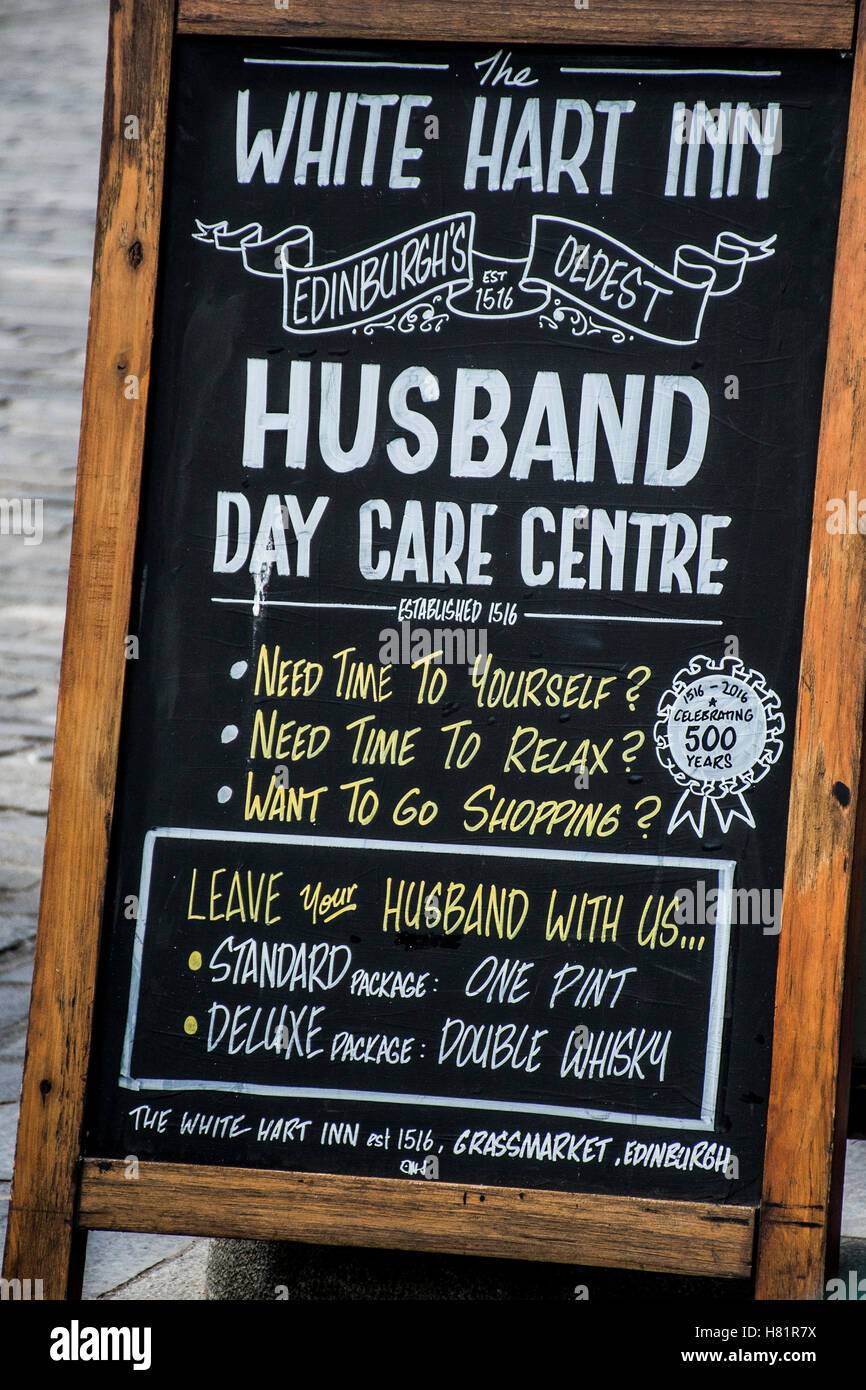 The
WHITE HART INN
EDINBURGH'S EST 1516 OLDEST
HUSBAND
DAY CARE CENTRE
ESTABLISHED 1516
• NEED TIME TO YOURSELF?
• NEED TIME TO RELAX?
• WANT TO GO SHOPPING?
1516 - 2016
CELEBRATING
500
YEARS
LEAVE your HUSBAND WITH US...
• STANDARD PACKAGE: ONE PINT
• DELUXE PACKAGE: DOUBLE WHISKY
THE WHITE HART INN est 1516, GRASSMARKET, EDINBURGH
alamy stock photo
H81R7X
www.alamy.com